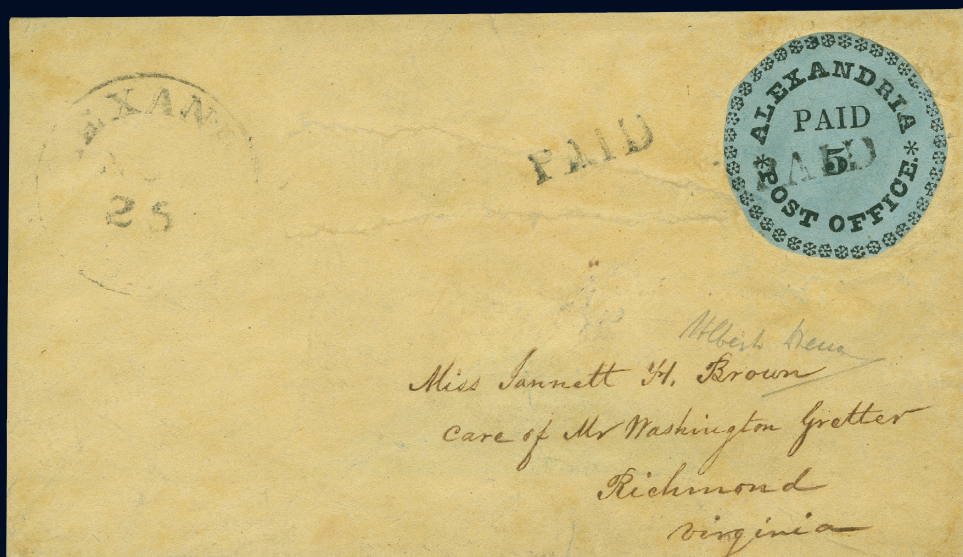 EXAN
25
PAID
* ALEXANDRIA *
PAID
5.
PAID
POST OFFICE.
Miss Jannett H. Brown
care of Mr Washington Gretter
Richmond
Virginia